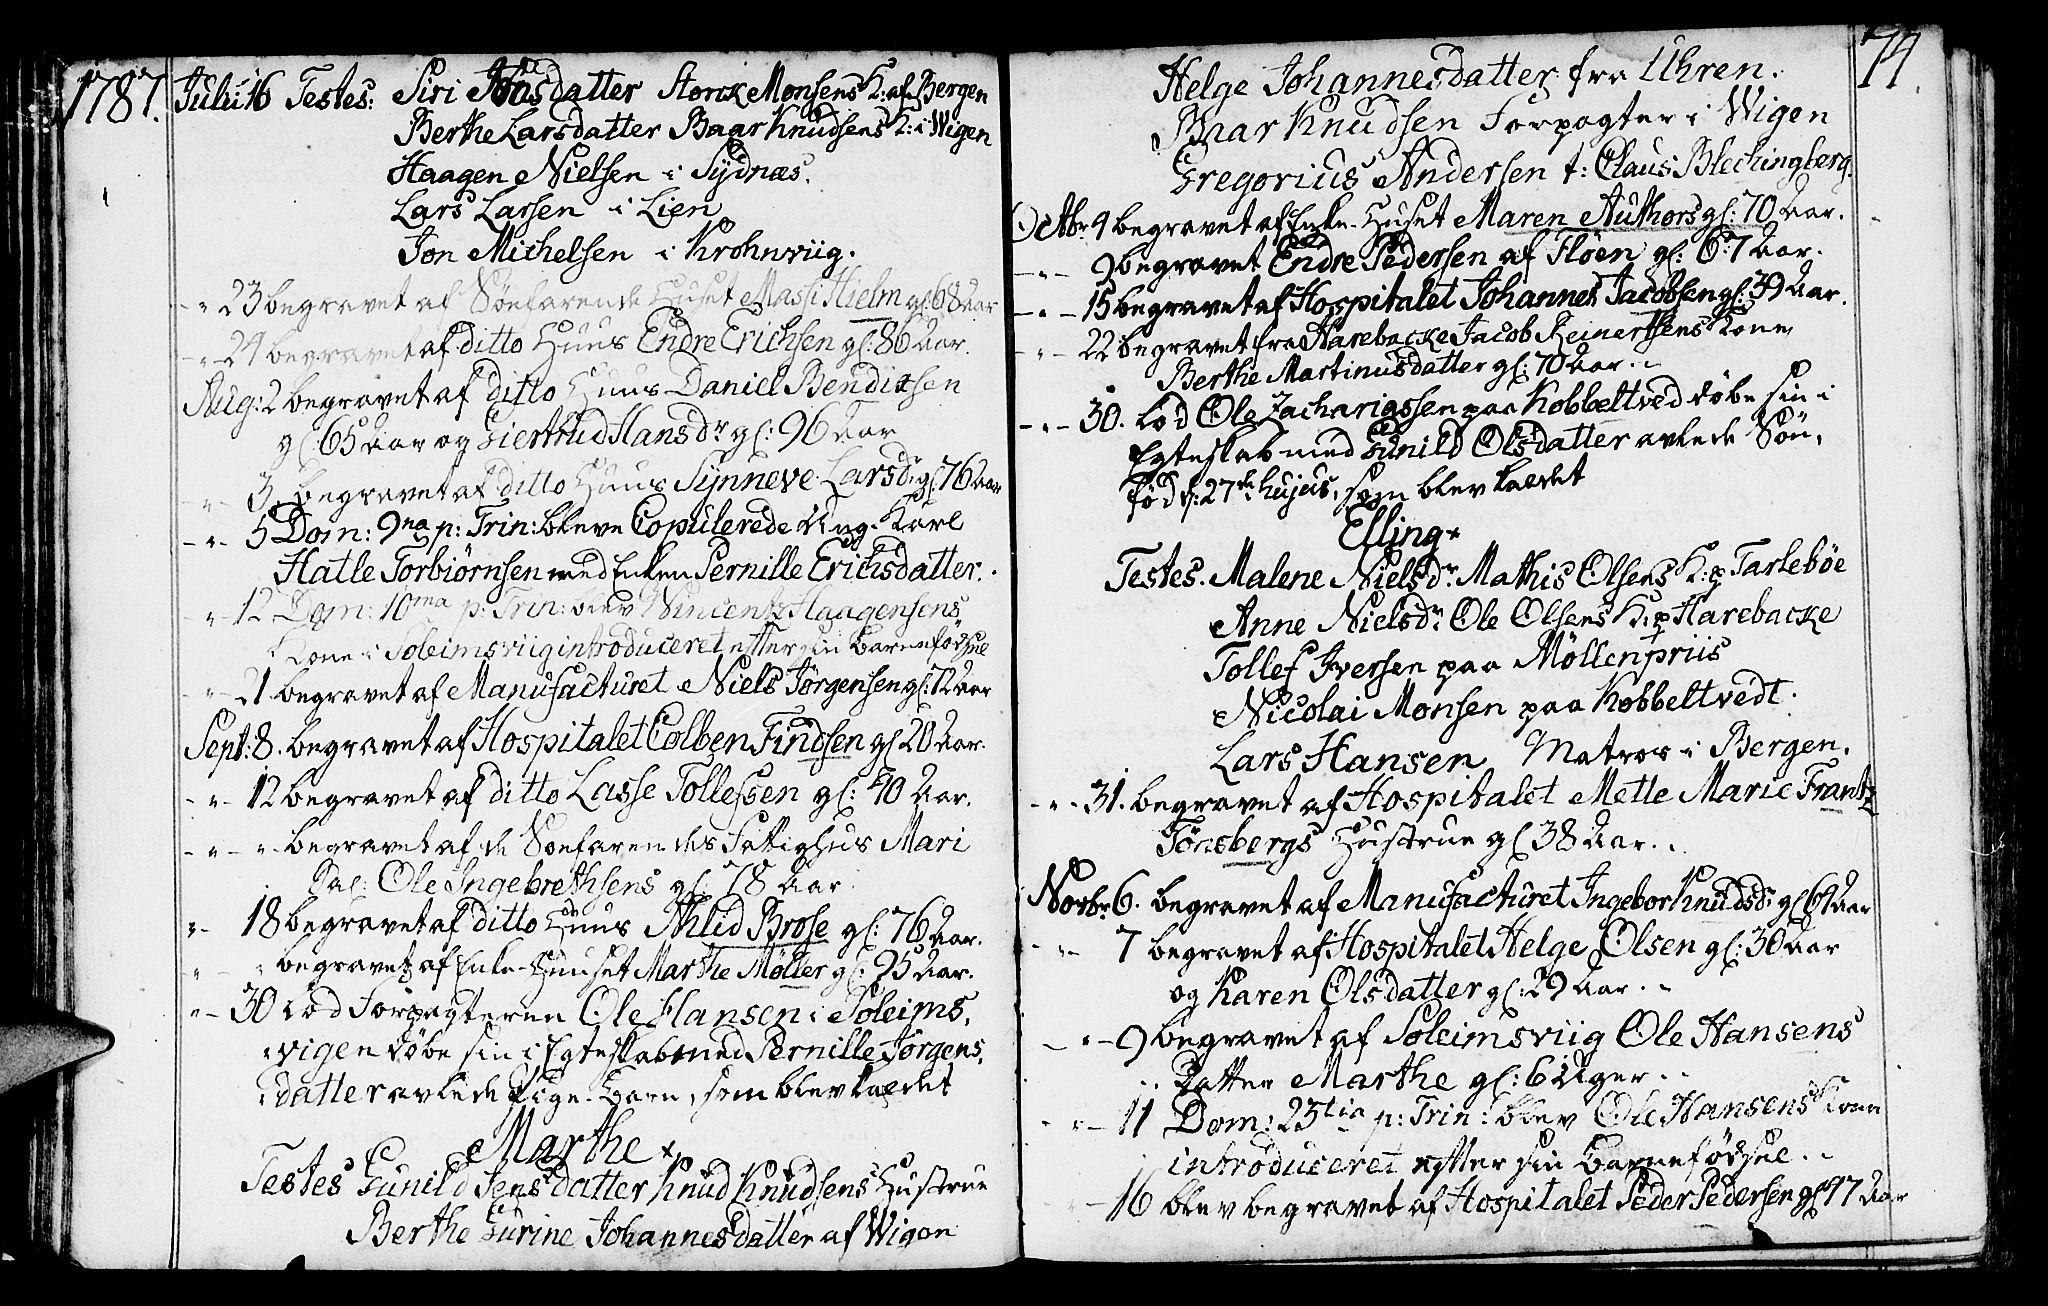 1787. Julii 16 Testes: Siri Jonsdatter Storck Monsens K: af Bergen
Berthe Larsdatter Baar Knudsens K: i Wigen
Haagen Nielsen i Sydnæs.
Lars Larsen i Lien
Jon Michelsen i Krohnviig.
- " 23 begravet af Söefarende Huset Massi Hielm gl: 68 Aar
- " 24 begravet af ditto Huus Endre Erichsen gl: 86 Aar.
Aug: 2 begravet af ditto Huus Daniel Bendixsen
gl: 65 Aar og Giertrud Hansdr gl: 96 Aar
- " 3. begravet af ditto Huus Synneve Larsdr gl: 76 Aar
- " - 5 Dom: 9na p: Trin: bleve Copulerede Ung-Karl
Hatle Torbiörnsen med Enken Pernille Erichsdatter.
" 12 Dom: 10ma p: Trin: blev Vincentz Haagensens
Kone i Soleimsviig introduceret efter sin Barnefödsel
- " - 21 begravet af Manufacturet Niels Jörgensen gl: 72 Aar
Sept: 8. begravet af Hospitalet Colben Findsen gl 20 Aar.
- " - 12 begravet af ditto Lasse Tollefsen gl: 40 Aar.
- " - " begravet af de Söefarendes Fattighus Mari
Sal: Ole Ingebrethsens gl: 78 Aar
" - 18 begravet af ditto Huus Ahlid Brose gl: 76 Aar.
" " begravet af Enke-Huuset Marthe Möller gl: 95 Aar.
" - 30 Lod Forpagteren Ole Hansen i Soleims,
vigen döbe sin i Egteskab med Pernille Jörgens,
datter avlede Pige-Barn, som blev kaldet
Marthe
Testes Gunild Jensdatter Knud Knudsens Hustrue
Berthe Gurine Johannesdatter af Wigen
74.
Helge Johannesdatter fra Uhren.
Baar Knudsen Forpagter i Wigen
Gregorius Andersen t: Claus Blechingberg.
Octbr 4 begravet af Enke-Huset Maren Authors gl: 70 Aar.
- " - 9 begravet Endre Pedersen af Flöen gl: 67 Aar.
- " - 15 begravet af Hospitalet Johannes Jacobsen gl: 39 Aar.
- " - 22 begravet fra Harebacke Jacob Reinertsens Kone
Berthe Martinusdatter gl: 70 Aar.
- " - 30. Lod Ole Zachariassen paa Kobbeltved döbe sin i
Egteskab med Gunild Olsdatter avlede Sön,
föd d: 27de hujus, som blev kaldet
Elling
Testes. Malene Nielsdr Mathis Olsens K: p Tarleböe
Anne Nielsdr Ole Olsens K: p Harebacke
Tollef Iversen paa Möllenpriis
Nicolai Monsen paa Kobbeltvedt.
Lars Hansen Matros i Bergen.
- " - 31. begravet af Hospitalet Mette Marie Frantz
Tönsbergs Hustrue gl 38 Aar.
Novbr 6. begravet af Manufacturet Ingebor Knudsdr gl 64 Aar
- " - 7 begravet af Hospitalet Helge Olsen gl: 30 Aar
og Karen Olsdatter gl: 29 Aar.
- " - 9 begravet af Soleimsviig Ole Hansens
Datter Marthe gl: 6 Uger.
- " - 11 Dom: 23tia p: Trin: blev Ole Hansens Kone
introduceret efter sin Barnefödsel.
- 16 blev begravet af Hospitalet Peder Pedersen gl: 47 Aar